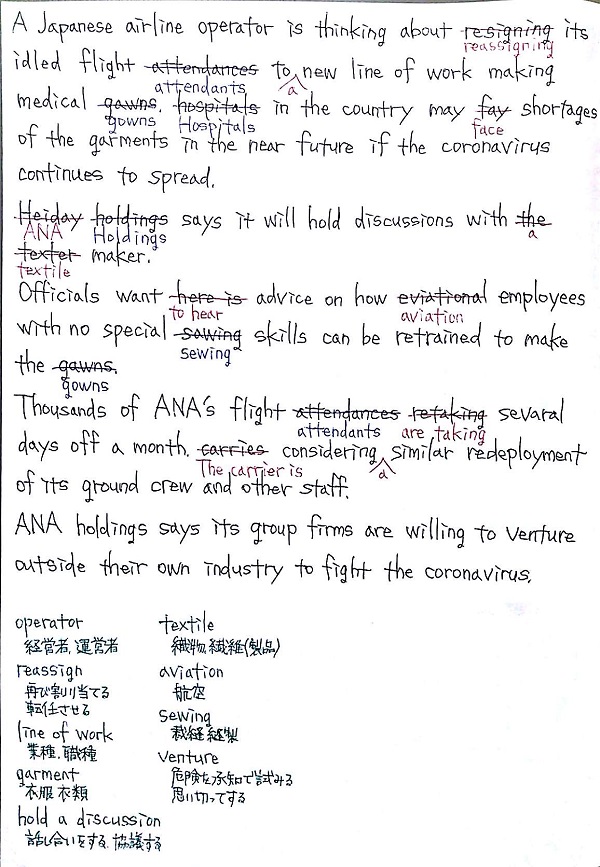 A Japanese airline operator is thinking about resigning its
reassigning
idled flight attendances to new line of work making
attendants a
medical gawns. hospitals in the country may fay shortages
gowns Hospitals face
of the garments in the near future if the coronavirus
continues to spread.
Heiday holdings says it will hold discussions with the
ANA Holdings a
texter maker.
textile
Officials want here is advice on how eviational employees
to hear aviation
with no special sawing skills can be retrained to make
sewing
the gawns.
gowns
Thousands of ANA's flight attendances retaking sevaral
attendants are taking
days off a month. carries considering similar redeployment
The carrier is a
of its ground crew and other staff.
ANA holdings says its group firms are willing to venture
outside their own industry to fight the coronavirus.
operator
経営者, 運営者
reassign
再び割り当てる
転任させる
line of work
業種, 職種
garment
衣服 衣類
hold a discussion
話し合いをする, 協議する
textile
織物, 繊維(製品)
aviation
航空
sewing
裁縫 縫製
venture
危険を承知で試みる
思い切ってする